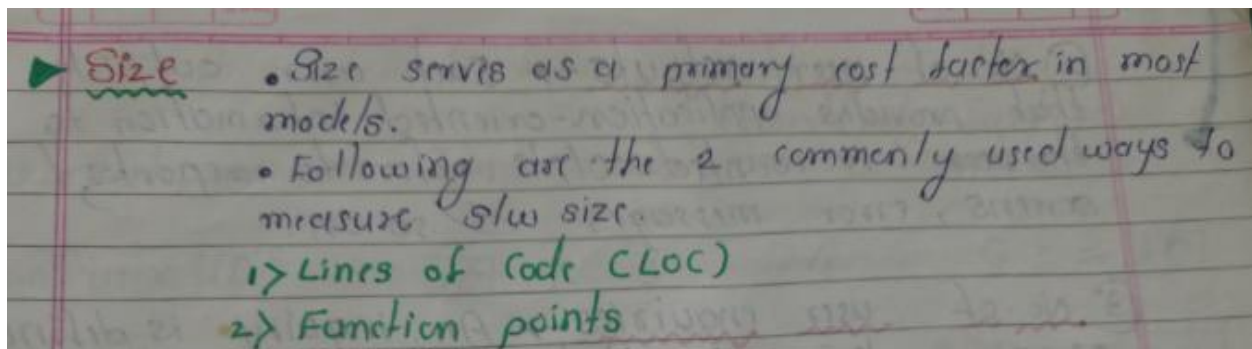 Size • Size serves as a primary cost factor in most
models.
• Following are the 2 commonly used ways to
measure s/w size
1> Lines of Code (LOC)
2> Function points